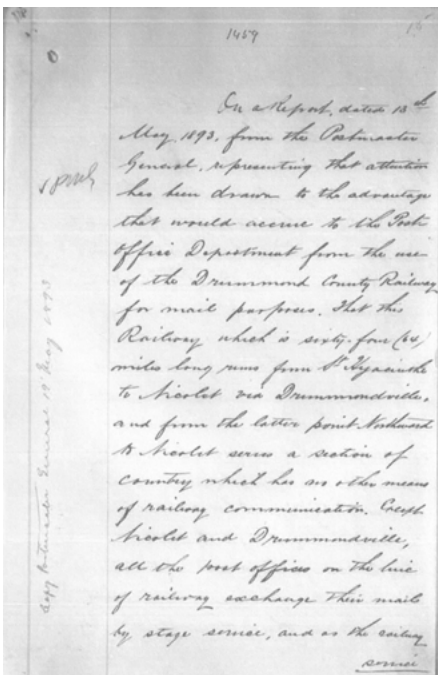 1459
15
On a Report, dated 13th
May, 1893, from the Postmaster
General, representing that attention
has been drawn to the advantage
that would accrue to the Post
Office Department from the use
of the Drummond County Railway
for mail purposes. That this
Railway which is sixty-four (64)
miles long runs from St Hyacinthe
to Nicolet via Drummondville,
and from the latter point Northward
to Nicolet serves a section of
country which has no other means
of railway communication. Except
Nicolet and Drummondville,
all the post offices on the line
of railway exchange their mails
by stage service, and as the railway
service
Copy Postmaster General 19 May 1893